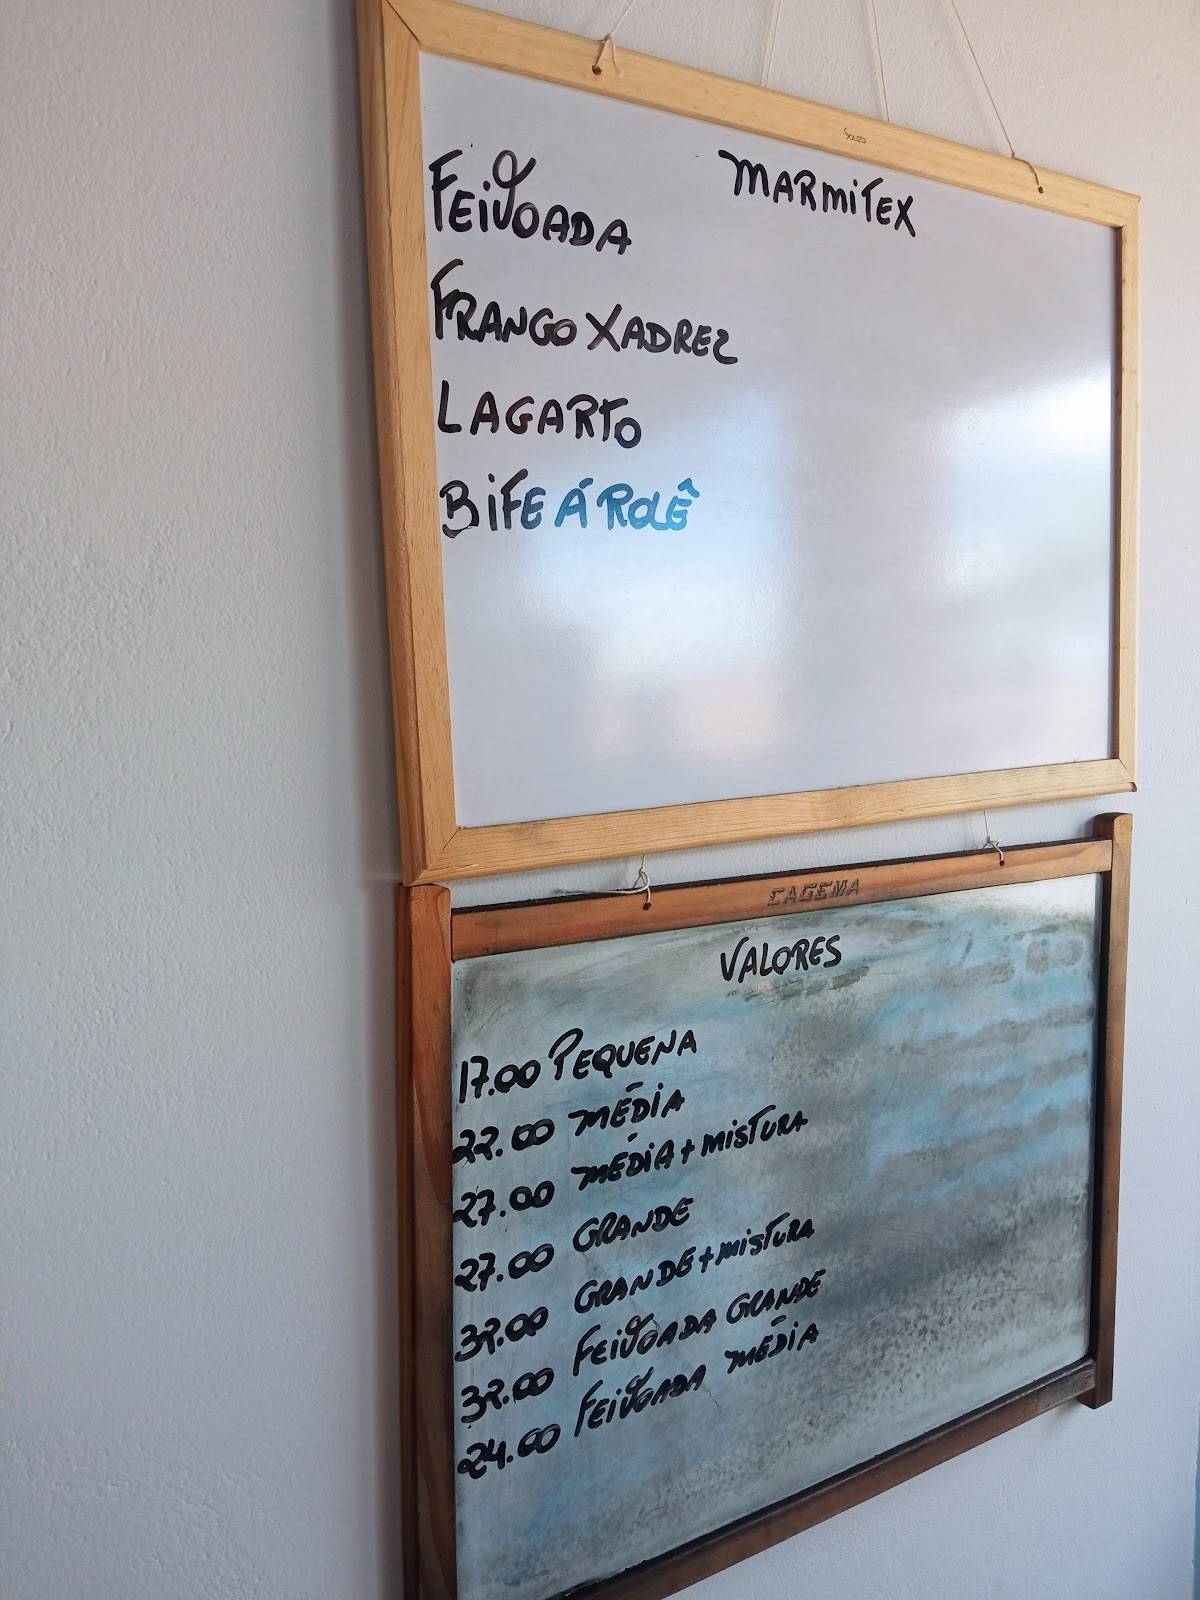 Souza
MARMITEX
FEIJOADA
FRANGO XADREZ
LAGARTO
BIFE Á ROLÊ
CAGEMA
VALORES
17.00 PEQUENA
22.00 MÉDIA
27.00 MÉDIA + MISTURA
27.00 GRANDE
32.00 GRANDE + MISTURA
32.00 FEIJOADA GRANDE
24.00 FEIJOADA MÉDIA